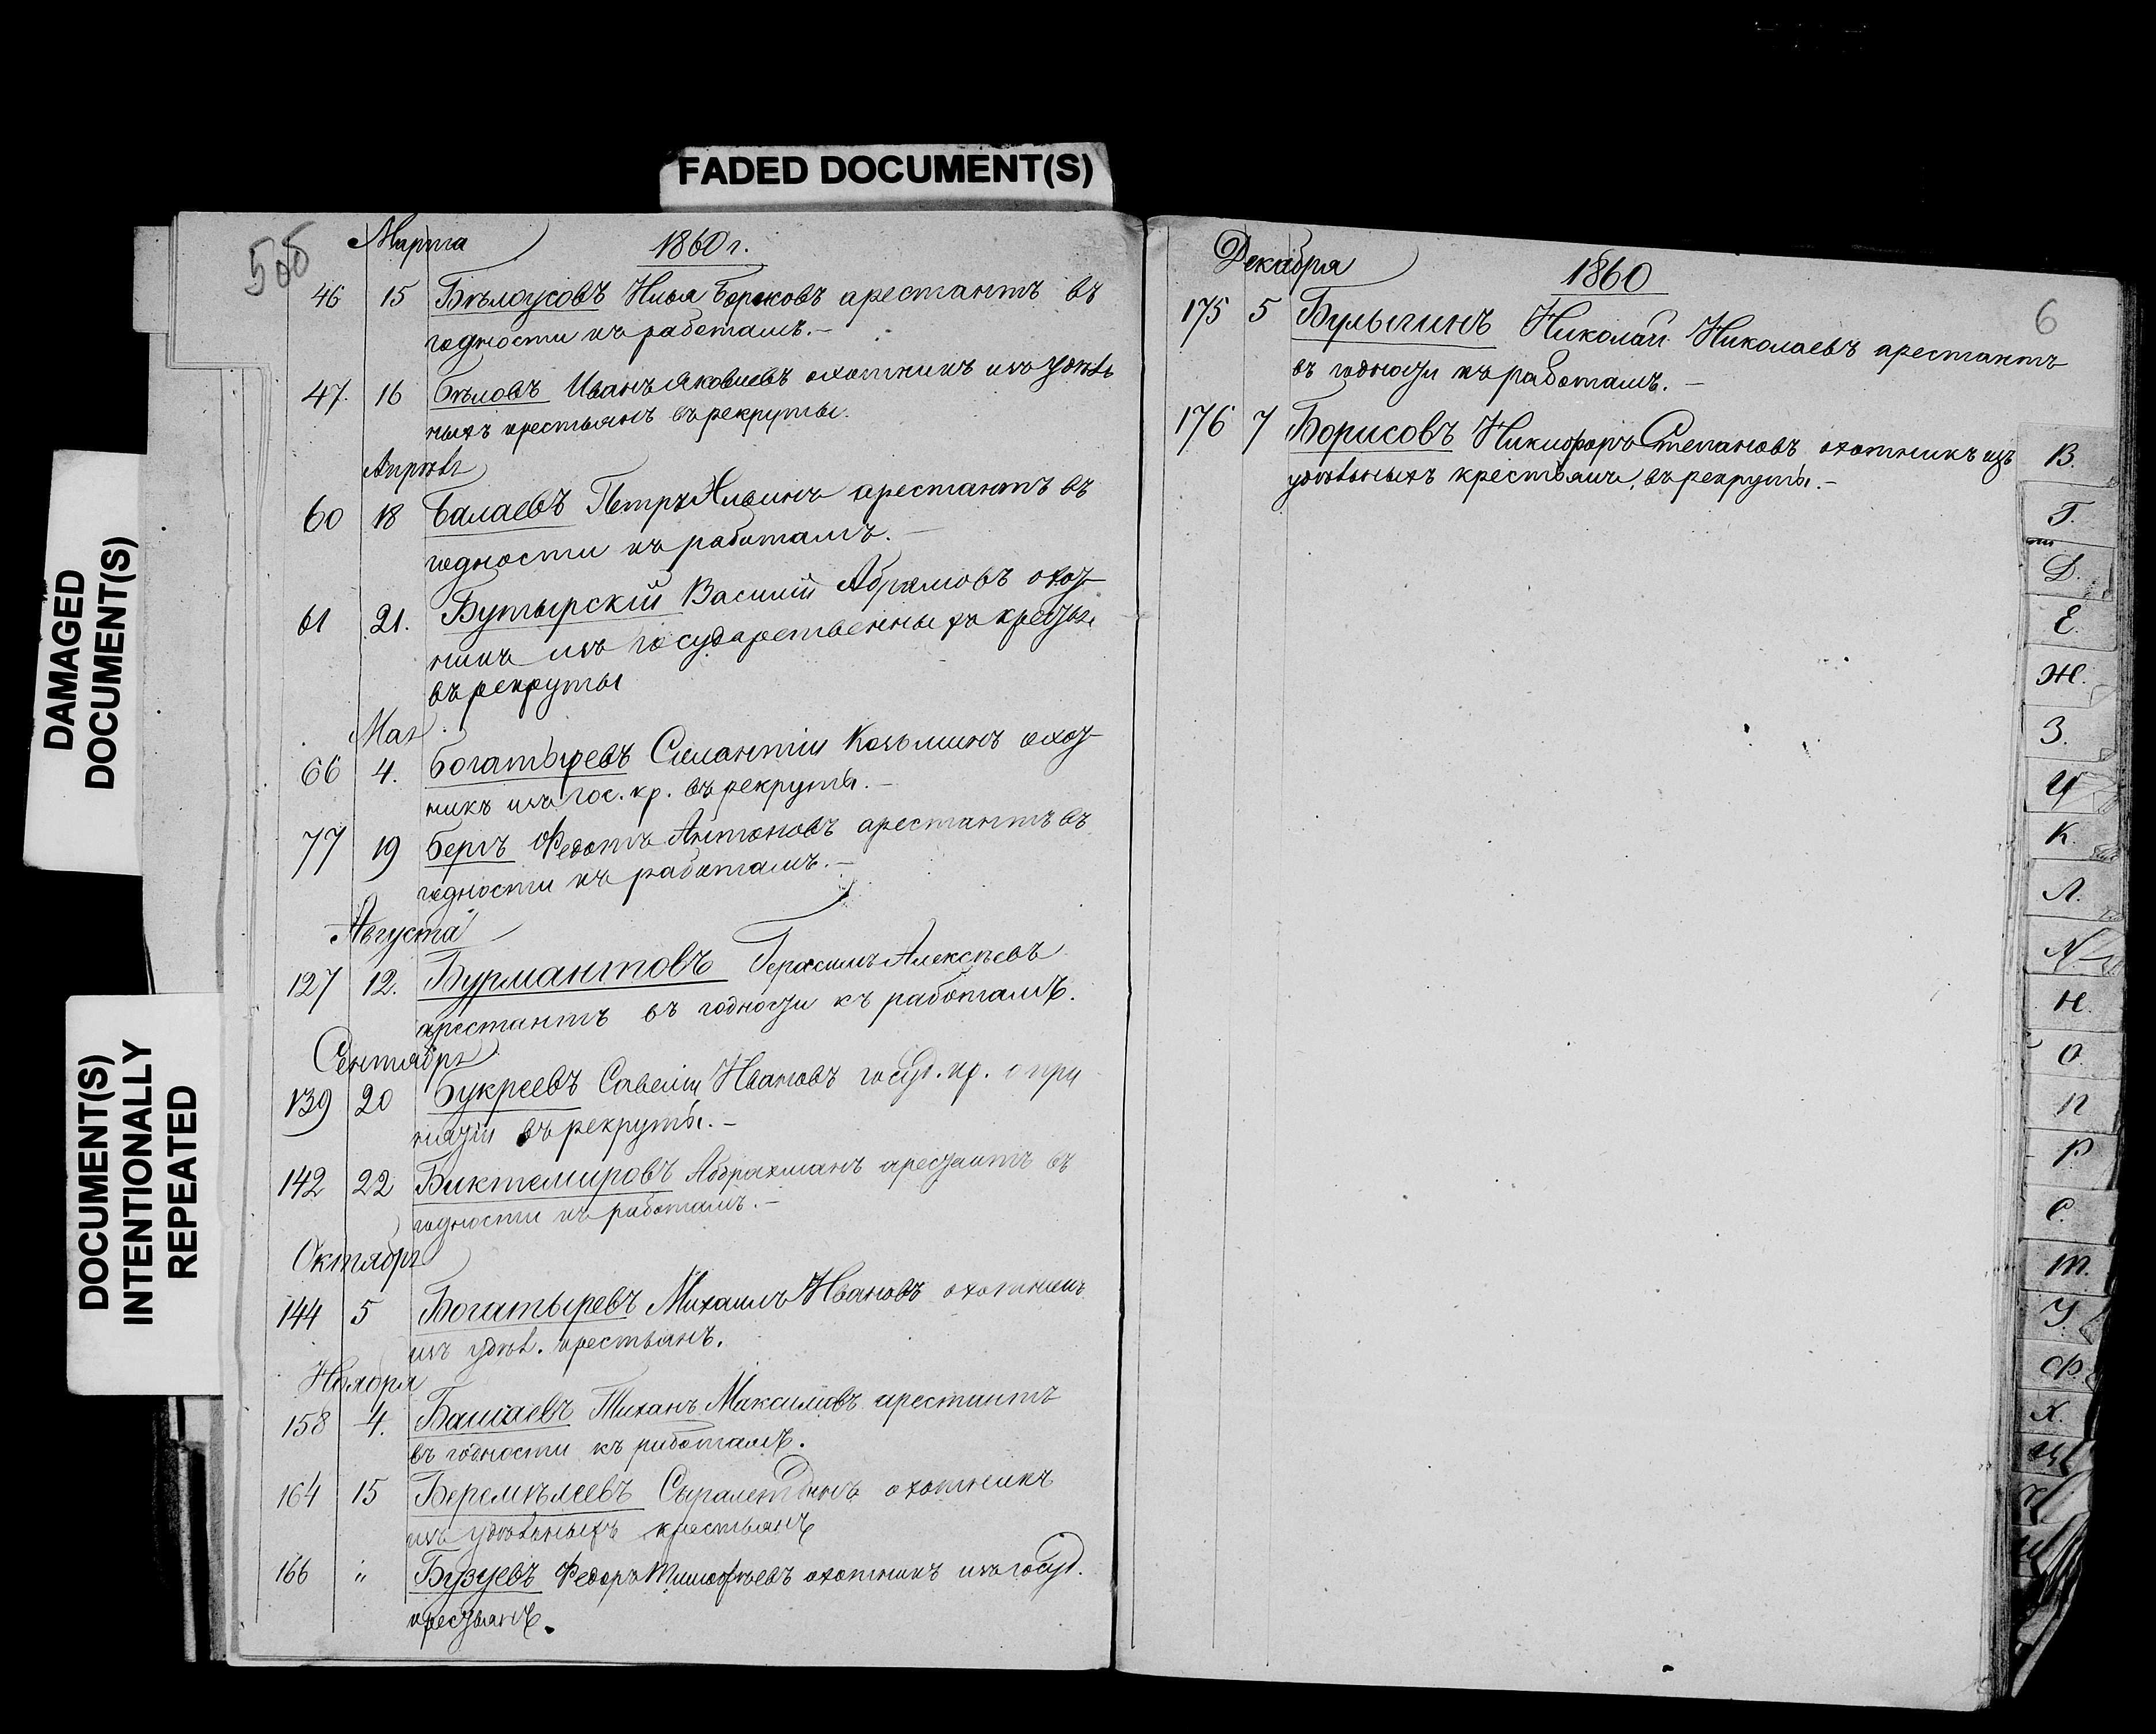 FADED DOCUMENT(S)
DAMAGED
DOCUMENT(S)
DOCUMENT(S)
INTENTIONALLY
REPEATED
Марта 1860 г.
46 15 Бѣлоусовъ Илья арестантъ въ
годности къ работамъ.–
47. 16 Бѣловъ Иванъ Яковлевъ охотникъ изъ удѣль
ныхъ крестьянъ въ рекруты.
Апрѣль
60 18 Балаевъ Петръ Ильинъ арестантъ въ
годности къ работамъ.–
61 21. Бутырскій Василій Абрамовъ охот
никъ изъ государственныхъ крестьян
въ рекруты
Мая
66 4. Богатыревъ Козьминъ охот
никъ изъ гос. кр. въ рекруты.–
77 19 Бергъ Федотъ Антоновъ арестантъ въ
годности къ работамъ.–
Августа
127 12. Бурмантовъ Герасимъ Алексѣевъ
арестантъ въ годности къ работамъ.
Сентября
139 20 Букреевъ Савелій Ивановъ госуд. кр. о при
въ рекруты.–
142 22 Биктемировъ Абдрахманъ арестантъ въ
годности къ работамъ.–
Октября
144 5 Богатыревъ Михаилъ Ивановъ охотникъ
изъ удѣл. крестьянъ.
Ноября
158 4. Башаевъ Тиханъ Максимовъ арестантъ
въ годности къ работамъ.
164 15 охотникъ
изъ удѣльныхъ крестьянъ
166 " Бузуевъ Федоръ Тимофѣевъ охотникъ изъ госуд.
крестьянъ.
Декабря 1860
6
175 5 Булыгинъ Николай Николаевъ арестантъ
въ годности къ работамъ.–
176 7 Борисовъ Никифоръ Степановъ охотникъ изъ
удѣльныхъ крестьянъ, въ рекруты.–
В.
Г.
Д.
Е.
Ж.
З.
И
К.
Л.
М.
Н.
О.
П
Р
С.
Т.
У.
Ф.
Х.
Ц
Ч